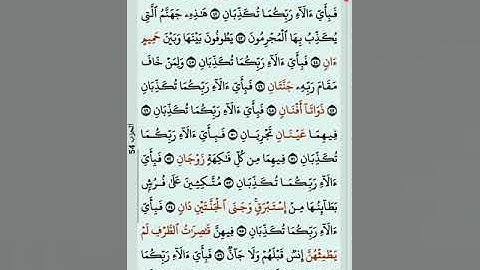 فَبِأَيِّ ءَالَآءِ رَبِّكُمَا تُكَذِّبَانِ ٤٢ هَـٰذِهِۦ جَهَنَّمُ ٱلَّتِي
يُكَذِّبُ بِهَا ٱلْمُجْرِمُونَ ٤٣ يَطُوفُونَ بَيْنَهَا وَبَيْنَ حَمِيمٍ
ءَانٍ ٤٤ فَبِأَيِّ ءَالَآءِ رَبِّكُمَا تُكَذِّبَانِ ٤٥ وَلِمَنْ خَافَ
مَقَامَ رَبِّهِۦ جَنَّتَانِ ٤٦ فَبِأَيِّ ءَالَآءِ رَبِّكُمَا تُكَذِّبَانِ
٤٧ ذَوَاتَآ أَفْنَانٍ ٤٨ فَبِأَيِّ ءَالَآءِ رَبِّكُمَا تُكَذِّبَانِ ٤٩
فِيهِمَا عَيْنَانِ تَجْرِيَانِ ٥٠ فَبِأَيِّ ءَالَآءِ رَبِّكُمَا
تُكَذِّبَانِ ٥١ فِيهِمَا مِن كُلِّ فَـٰكِهَةٍ زَوْجَانِ ٥٢ فَبِأَيِّ
ءَالَآءِ رَبِّكُمَا تُكَذِّبَانِ ٥٣ مُتَّكِـِٔينَ عَلَىٰ فُرُشٍۭ
بَطَآئِنُهَا مِنْ إِسْتَبْرَقٍ وَجَنَى ٱلْجَنَّتَيْنِ دَانٍ ٥٤ فَبِأَيِّ
ءَالَآءِ رَبِّكُمَا تُكَذِّبَانِ ٥٥ فِيهِنَّ قَـٰصِرَٰتُ ٱلطَّرْفِ لَمْ
يَطْمِثْهُنَّ إِنسٌ قَبْلَهُمْ وَلَا جَآنٌّ ٥٦ فَبِأَيِّ ءَالَآءِ رَبِّكُمَا
الحزب 54